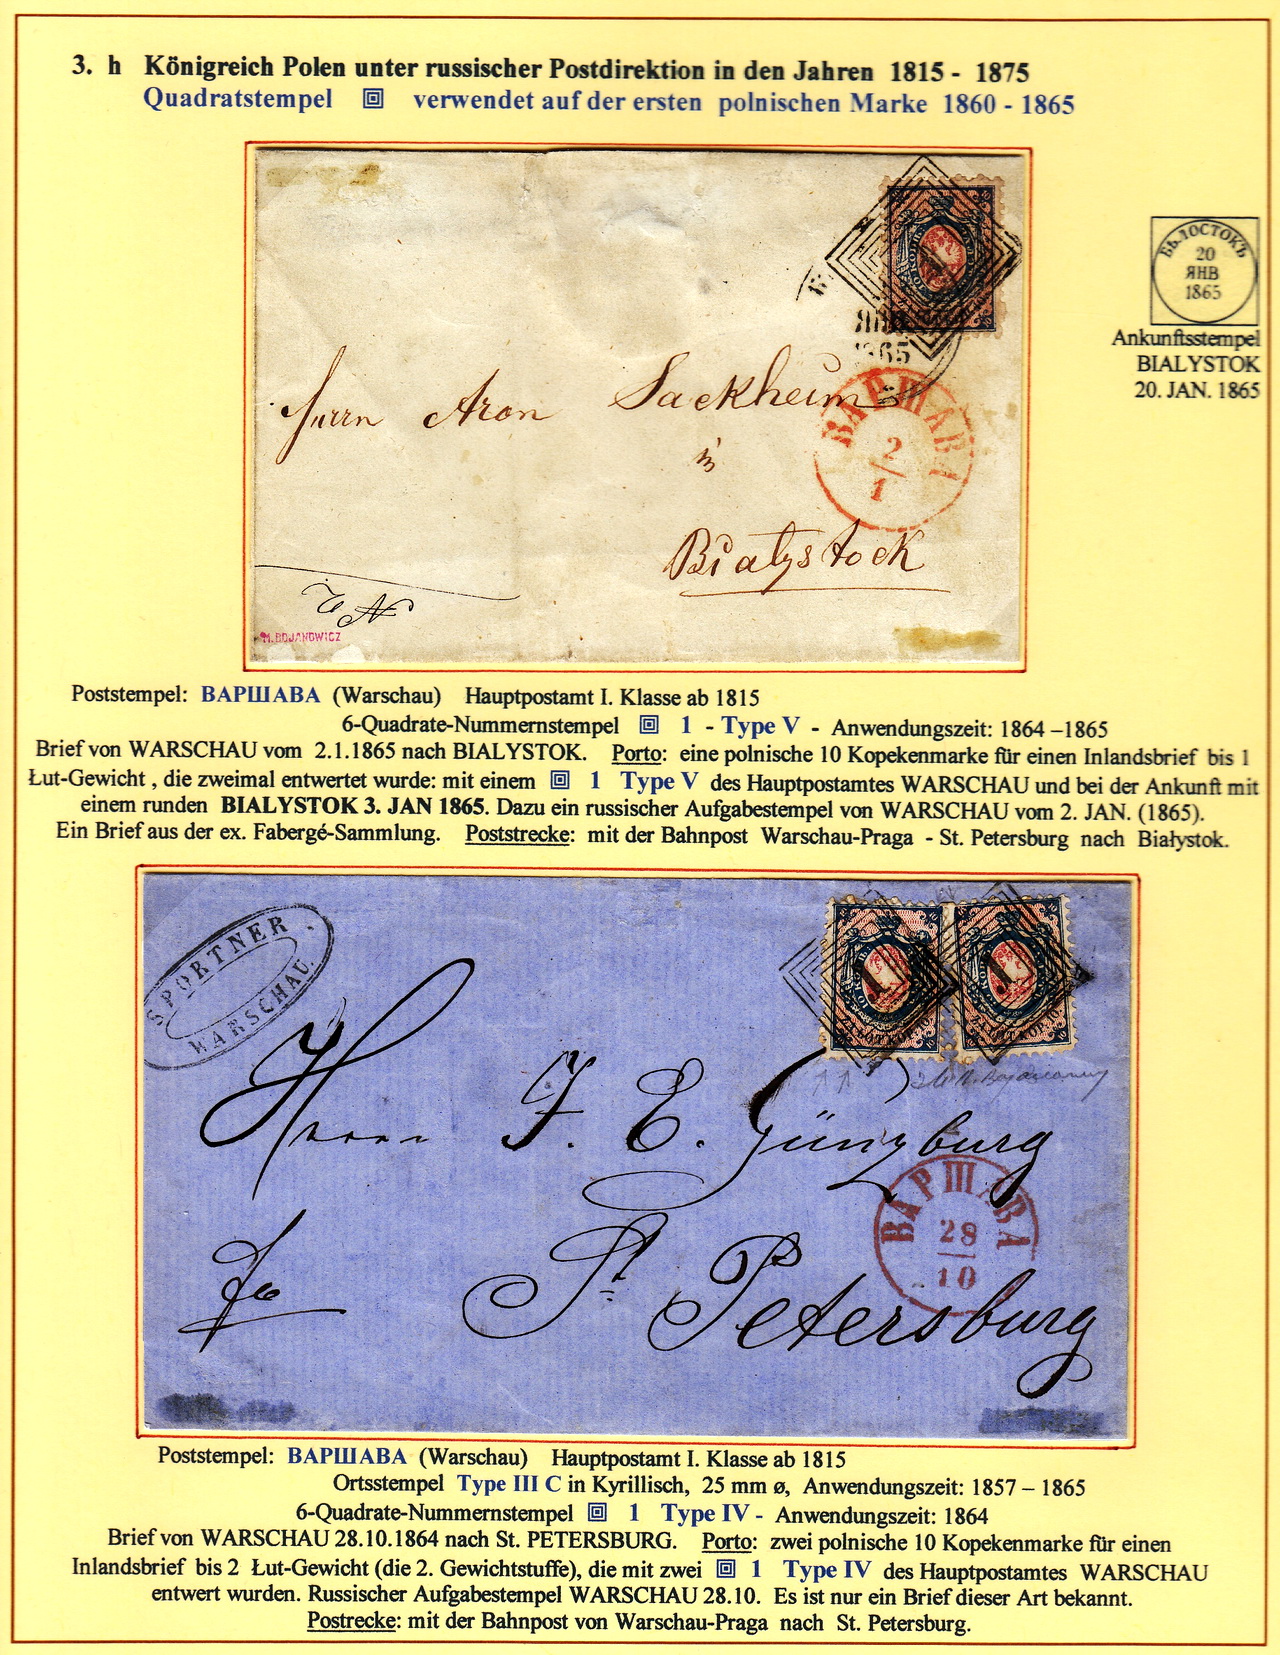 3. h Königreich Polen unter russischer Postdirektion in den Jahren 1815 - 1875
Quadratstempel verwendet auf der ersten polnischen Marke 1860 - 1865
БѢЛОСТОКЪ
20
ЯНВ
1865
Ankunftsstempel
BIALYSTOK
20. JAN. 1865
1
ЯНВ
1865
Herrn Aron Sackheim
in
Bialystock
ВАРШАВА
2
1
M. BOJANOWICZ
Poststempel: ВАРШАВА (Warschau) Hauptpostamt I. Klasse ab 1815
6-Quadrate-Nummernstempel 1 - Type V - Anwendungszeit: 1864 –1865
Brief von WARSCHAU vom 2.1.1865 nach BIALYSTOK. Porto: eine polnische 10 Kopekenmarke für einen Inlandsbrief bis 1
Łut-Gewicht , die zweimal entwertet wurde: mit einem 1 Type V des Hauptpostamtes WARSCHAU und bei der Ankunft mit
einem runden BIALYSTOK 3. JAN 1865. Dazu ein russischer Aufgabestempel von WARSCHAU vom 2. JAN. (1865).
Ein Brief aus der ex. Fabergé-Sammlung. Poststrecke: mit der Bahnpost Warschau-Praga - St. Petersburg nach Białystok.
S PORTNER
WARSCHAU.
1
1
Herrn J. E. Günzburg
St Petersburg
ВАРШАВА
28
10
Poststempel: ВАРШАВА (Warschau) Hauptpostamt I. Klasse ab 1815
Ortsstempel Type III C in Kyrillisch, 25 mm ø, Anwendungszeit: 1857 – 1865
6-Quadrate-Nummernstempel 1 Type IV - Anwendungszeit: 1864
Brief von WARSCHAU 28.10.1864 nach St. PETERSBURG. Porto: zwei polnische 10 Kopekenmarke für einen
Inlandsbrief bis 2 Łut-Gewicht (die 2. Gewichtstuffe), die mit zwei 1 Type IV des Hauptpostamtes WARSCHAU
entwert wurden. Russischer Aufgabestempel WARSCHAU 28.10. Es ist nur ein Brief dieser Art bekannt.
Postrecke: mit der Bahnpost von Warschau-Praga nach St. Petersburg.